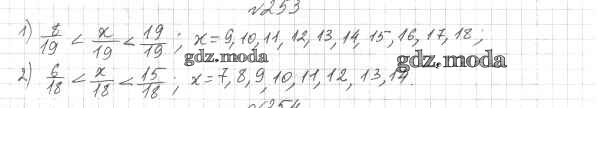 №253
1) 8/19 < x/19 < 19/19; x=9,10,11, 12, 13, 14, 15, 16, 17, 18;
gdz.moda
gdz.moda
2) 6/18 < x/18 < 15/18; x=7,8,9,10,11,12, 13,14.
№254